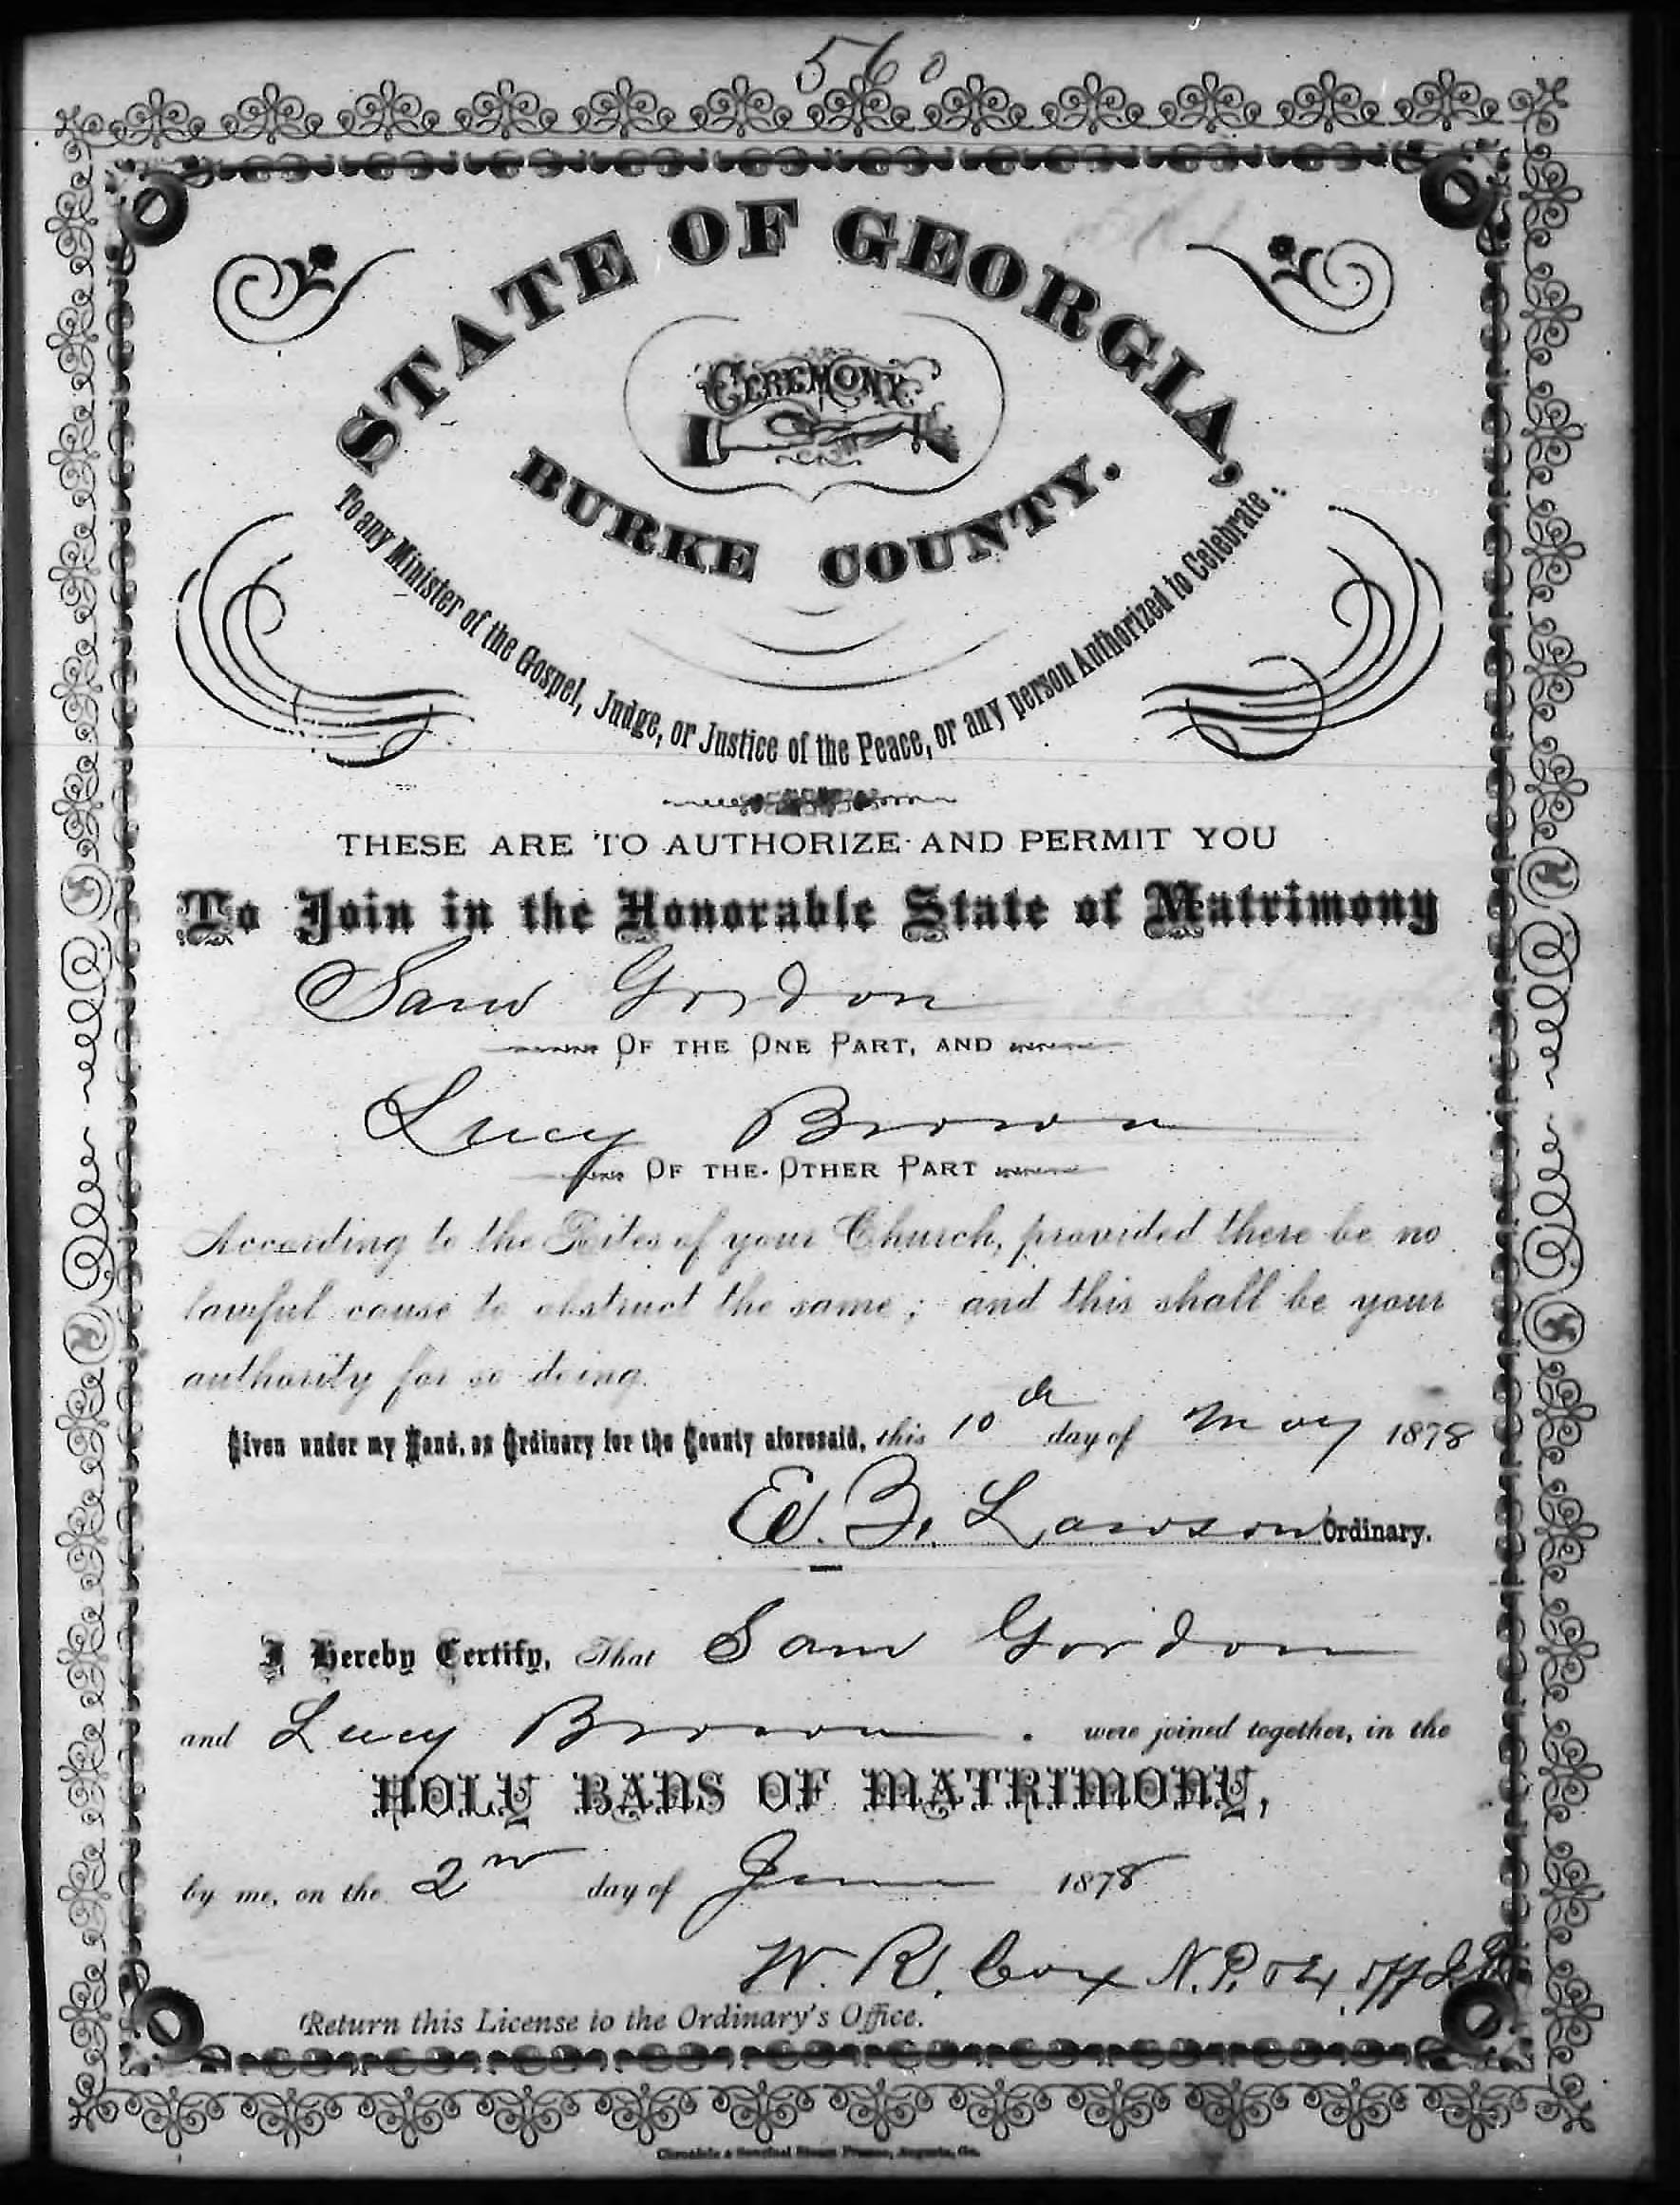 560
STATE OF GEORGIA,
CEREMONY
BURKE COUNTY.
To any Minister of the Gospel, Judge, or Justice of the Peace, or any person Authorized to Celebrate:
THESE ARE TO AUTHORIZE AND PERMIT YOU
To Join in the Honorable State of Matrimony
Sam Gordon
OF THE ONE PART, AND
Lucy Brown
OF THE OTHER PART
According to the Rites of your Church, provided there be no
lawful cause to obstruct the same; and this shall be your
authority for so doing.
Given under my Hand, as Ordinary for the County aforesaid, this 10th day of May 1878
E. B. Lawson Ordinary.
I Hereby Certify, That Sam Gordon
and Lucy Brown. were joined together, in the
HOLY BANS OF MATRIMONY,
by me, on the 2nd day of June 1878
W. R. Cox N.P.
Return this License to the Ordinary's Office.
Chronicle & Sentinel Steam Presses, Augusta, Ga.